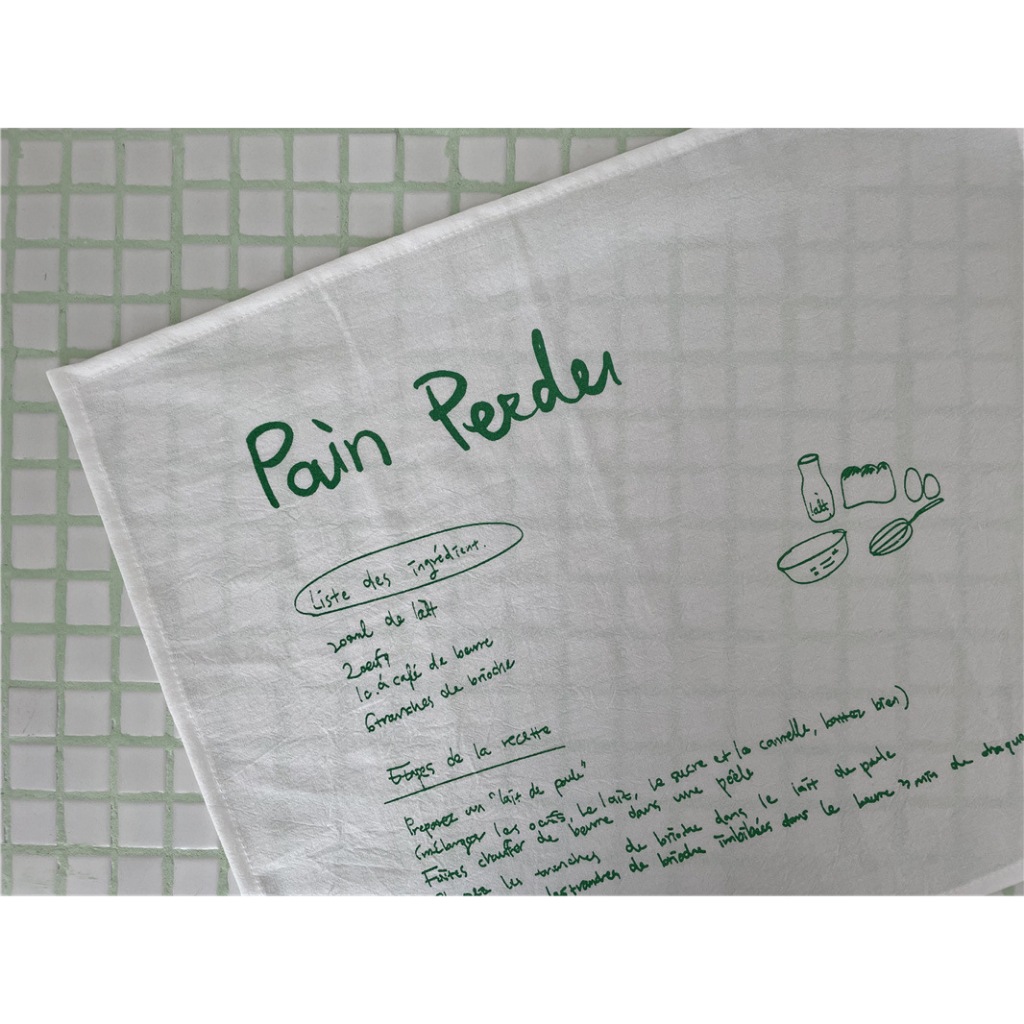 Pain Perdu
lait
Liste des ingrédient.
200ml de lait
2oeufs
1c.à café de beurre
6tranches de brioche
Etapes de la recette
Preparez un "lait de poule"
(mélanger les oeufs, le lait, le sucre et la cannelle, battez bien)
Faites chauffer de beurre dans une poêle
les tranches de brioche dans le lait de poule
les tranches de brioche imbibées dans le beurre 3 min de chaque